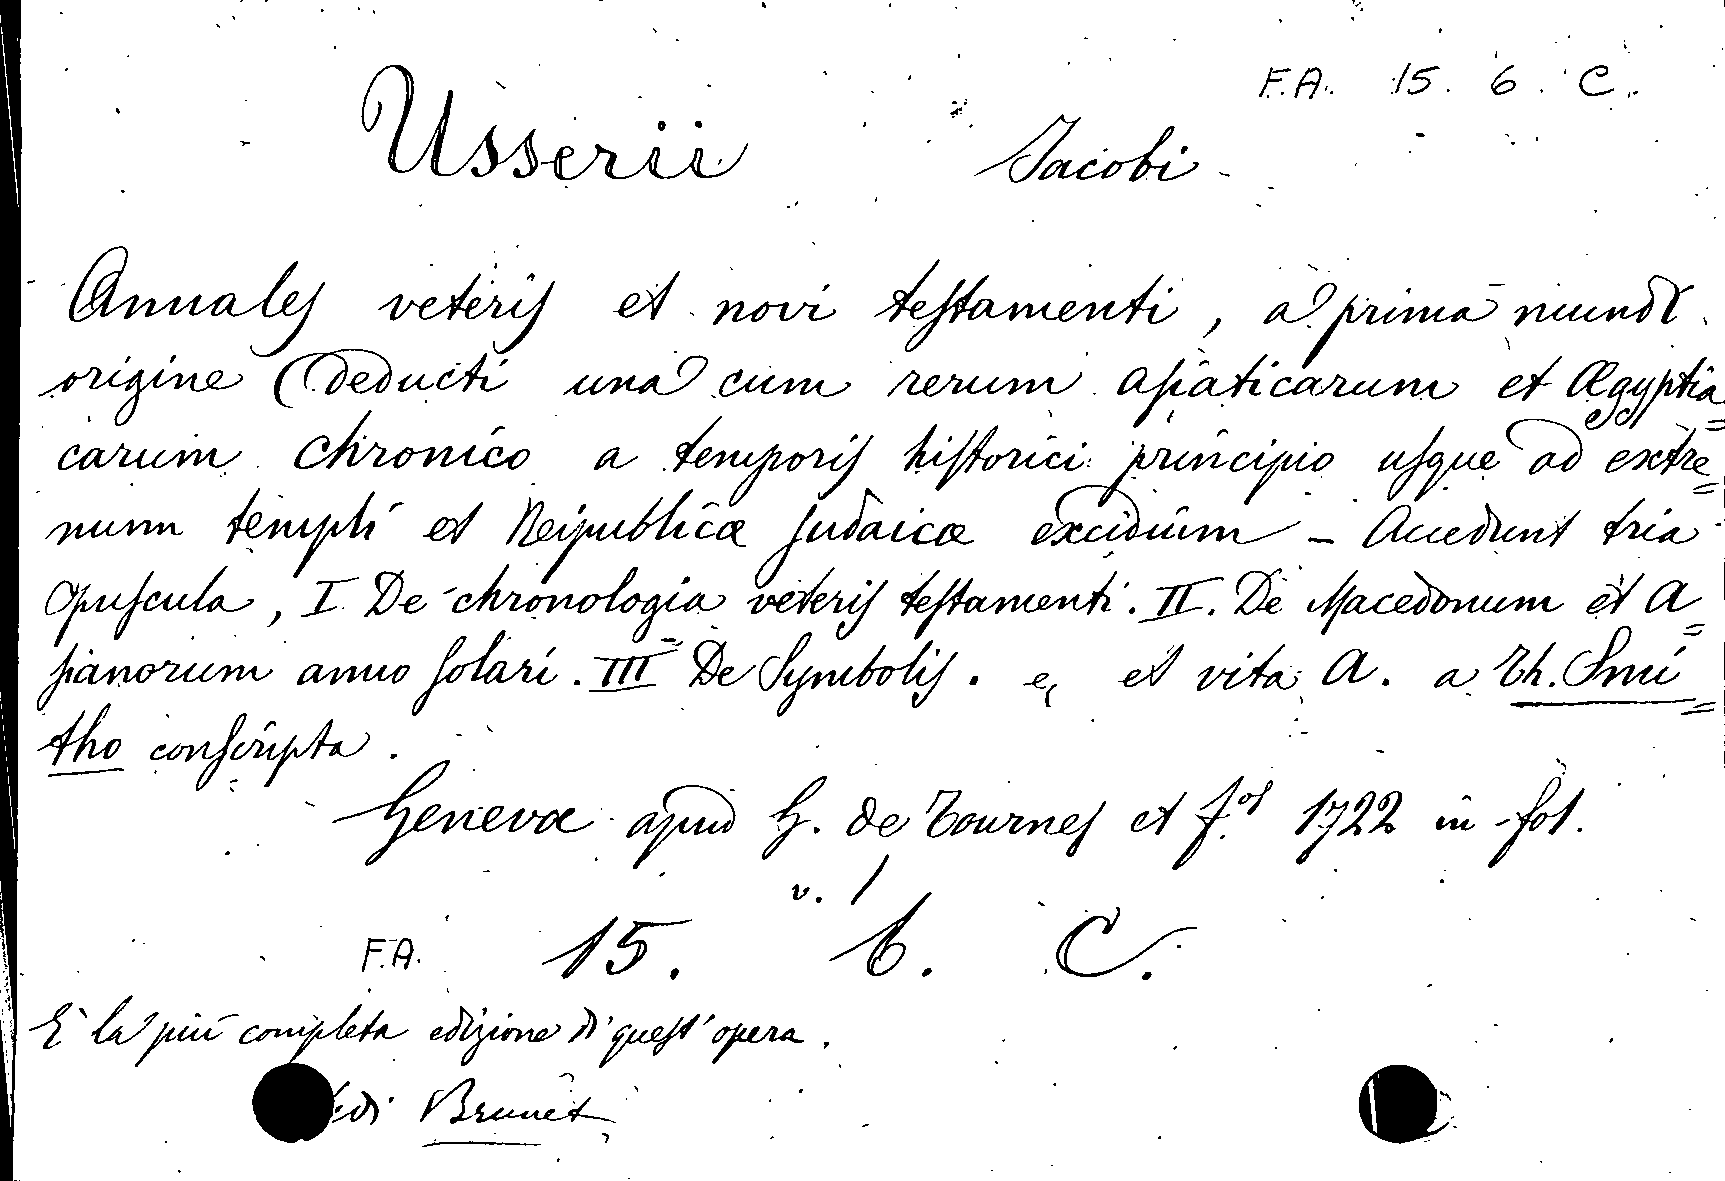 F.A. 15. 6. C.
Usserii Jacobi
Annales veteris et novi testamenti, a prima mundi
origine deducti una cum rerum asiaticarum et Ægyptia=
carum chronico a temporis historici principio usque ad extre=
mum templi et Reipublicæ Judaicæ excidium - Accedunt tria
opuscula, I. De chronologia veteris testamenti. II. De Macedonum et A=
sianorum anno solari. III De Symbolis. et vita A. a Th. Smi=
tho conscripta.
Genevæ apud G. de Tournes et f.os 1722 in-fol.
v. 1
F.A. 15. 6. C.
È la più completa edizione di quest'opera.
Brunet